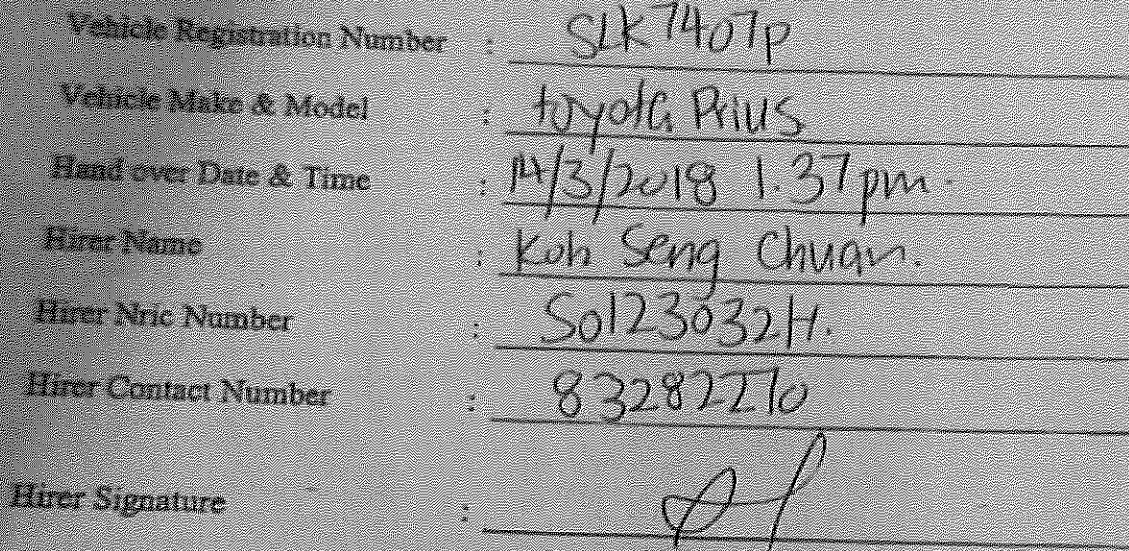 Vehicle Registration Number : SLK7407P
Vehicle Make & Model : toyota Prius
Hand over Date & Time : 14/3/2018 1.37pm
Hirer Name : Koh Seng Chuan.
Hirer Nric Number : S0123032H.
Hirer Contact Number :
Hirer Signature :